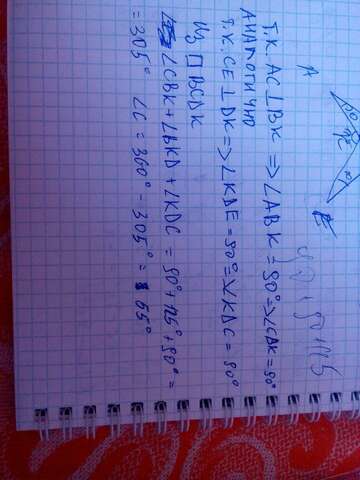 A
Т.К. AC⊥BK => ∠ABK = 90° => ∠CBK = 90°
Аналогично
Т.К. CE⊥DK => ∠KDE = 90° => ∠KDC = 90°
Из BCDK
∠CBK + ∠BKD + ∠KDC = 90° + 125° + 90° =
= 305° ∠C = 360° - 305° = 55°